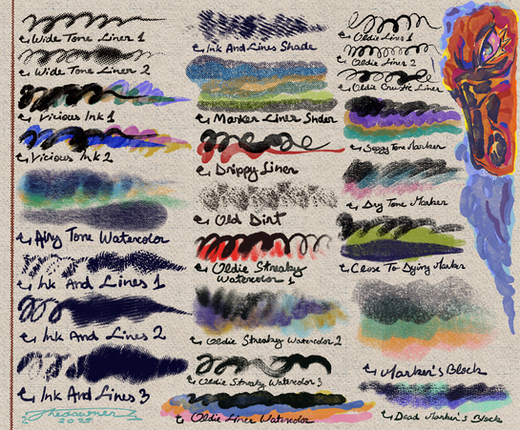 Wide Tone Liner 1
Wide Tone Liner 2
Vicious Ink 1
Vicious Ink 2
Airy Tone Watercolor
Ink And Lines 1
Ink And Lines 2
Ink And Lines 3
2025
Ink And Lines Shade
Marker Liner Shder
Drippy Liner
Old Dirt
Oldie Streaky
Watercolor 1
Oldie Streaky Watercolor 2
Oldie Streaky Watercolor 3
Oldie Liner Watercolor
Oldie Liner 1
Oldie Liner 2
Oldie Crustie Liner
Soggy Tone Marker
Dry Tone Marker
Close To Dying Marker
Marker's Block
Dead Marker's Block